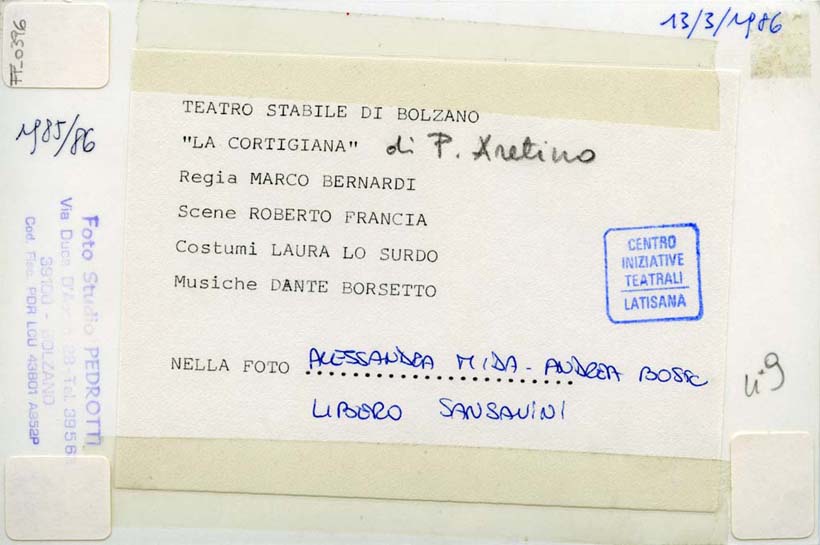 13/3/1986
FF_0396
1985/86
TEATRO STABILE DI BOLZANO
"LA CORTIGIANA" di P. Aretino
Regia MARCO BERNARDI
Scene ROBERTO FRANCIA
Costumi LAURA LO SURDO
Musiche DANTE BORSETTO
NELLA FOTO ALESSANDRA MIDA - ANDREA
LIBERO SANSAVINI
CENTRO
INIZIATIVE
TEATRALI
LATISANA
Foto Studio PEDROTTI
Via Duca
39100 - BOLZANO
Cod. Fisc. PDR LCU 43B01 A952P